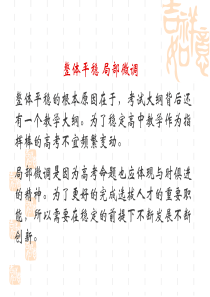 整体平稳 局部微调
整体平稳的根本原因在于，考试大纲背后还
有一个教学大纲。为了稳定高中教学作为指
挥棒的高考不宜频繁变动。
局部微调是因为高考命题也应体现与时俱进
的精神。为了更好的完成选拔人才的重要职
能，所以需要在稳定的前提下不断发展不断
创新。